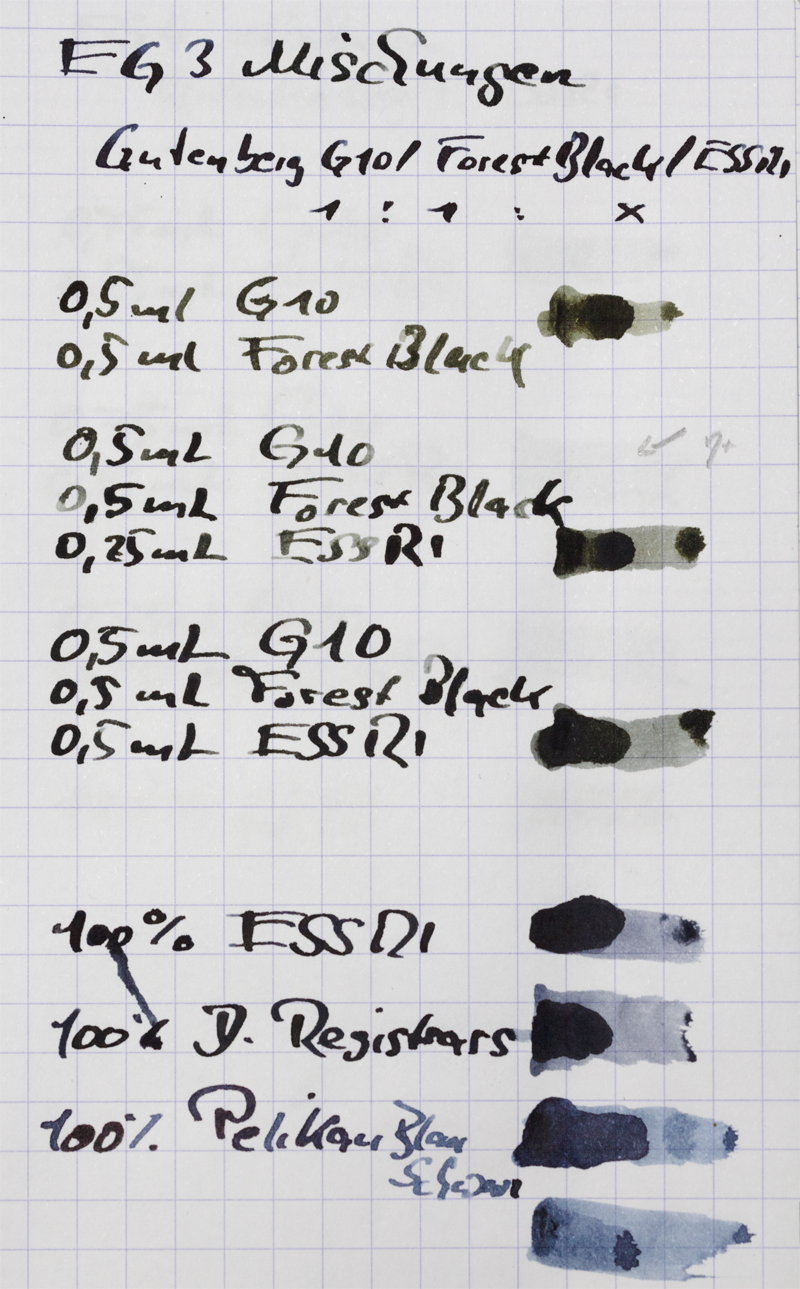 EG 3 Mischungen
Gutenberg G10/ Forest Black/ ESSRI
1 : 1 : x
0,5ml G10
0,5ml Forest Black
0,5mL G10
0,5mL Forest Black
0,25mL ESSRI
0,5mL G10
0,5mL Forest Black
0,5mL ESSRI
100% ESSRI
100% D. Registrars
100% Pelikan Blau
Schwarz